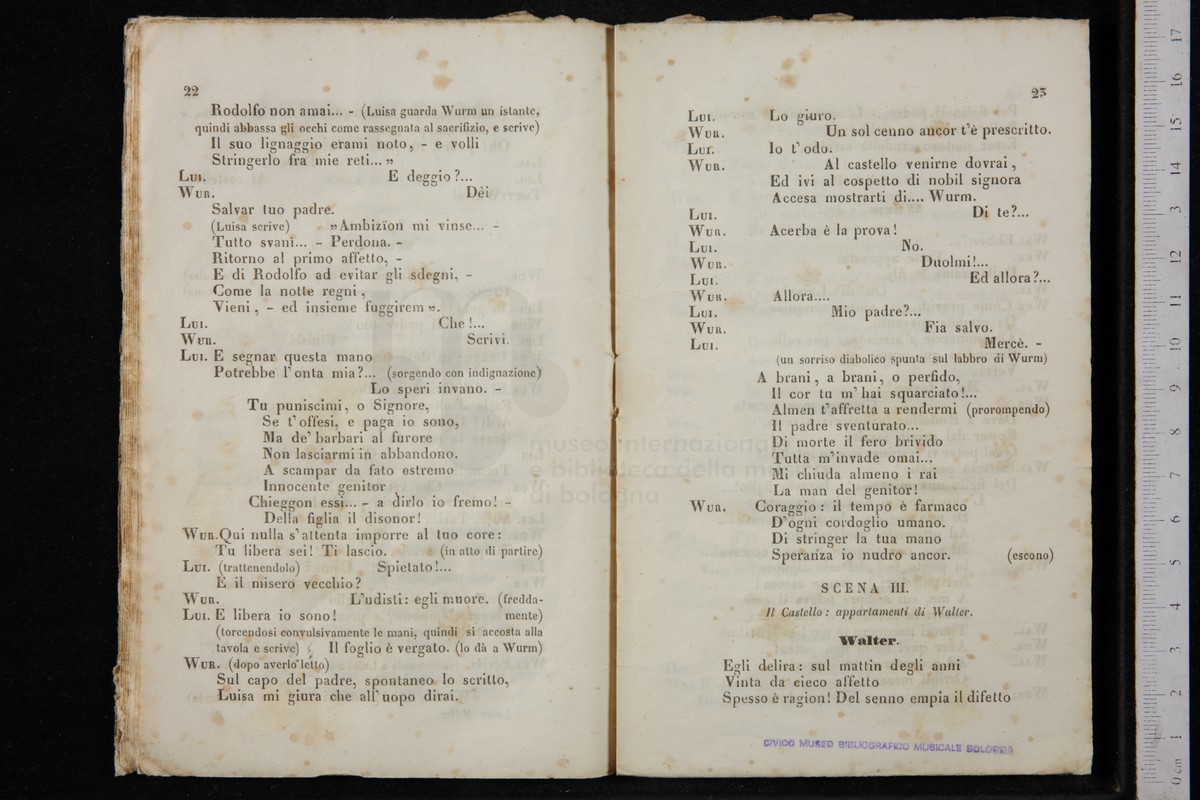 22
Rodolfo non amai... - (Luisa guarda Wurm un istante,
quindi abbassa gli occhi come rassegnata al sacrifizio, e scrive)
Il suo lignaggio erami noto, - e volli
Stringerlo fra mie reti... »
Lui. E deggio?...
Wur. Dèi
Salvar tuo padre.
(Luisa scrive) »Ambizïon mi vinse... -
Tutto svanì... - Perdona. -
Ritorno al primo affetto, -
E di Rodolfo ad evitar gli sdegni, -
Come la notte regni,
Vieni, - ed insieme fuggirem ».
Lui. Che!...
Wur. Scrivi.
Lui. E segnar questa mano
Potrebbe l'onta mia?... (sorgendo con indignazione)
Lo speri invano. -
Tu puniscimi, o Signore,
Se t'offesi, e paga io sono,
Ma de' barbari al furore
Non lasciarmi in abbandono.
A scampar da fato estremo
Innocente genitor
Chieggon essi... - a dirlo io fremo! -
Della figlia il disonor!
Wur. Qui nulla s'attenta imporre al tuo core:
Tu libera sei! Ti lascio. (in atto di partire)
Lui. (trattenendolo) Spietato!...
E il misero vecchio?
Wur. L'udisti: egli muore. (fredda-
Lui. E libera io sono! mente)
(torcendosi convulsivamente le mani, quindi si accosta alla
tavola e scrive) Il foglio è vergato. (lo dà a Wurm)
Wur. (dopo averlo letto)
Sul capo del padre, spontaneo lo scritto,
Luisa mi giura che all'uopo dirai.
23
Lui. Lo giuro.
Wur. Un sol cenno ancor t'è prescritto.
Lui. Io t'odo.
Wur. Al castello venirne dovrai,
Ed ivi al cospetto di nobil signora
Accesa mostrarti di.... Wurm.
Lui. Di te?...
Wur. Acerba è la prova!
Lui. No.
Wur. Duolmi!...
Lui. Ed allora?...
Wur. Allora....
Lui. Mio padre?...
Wur. Fia salvo.
Lui. Mercè. -
(un sorriso diabolico spunta sul labbro di Wurm)
A brani, a brani, o perfido,
Il cor tu m'hai squarciato!...
Almen t'affretta a rendermi (prorompendo)
Il padre sventurato...
Di morte il fero brivido
Tutta m'invade omai...
Mi chiuda almeno i rai
La man del genitor!
Wur. Coraggio: il tempo è farmaco
D'ogni cordoglio umano.
Di stringer la tua mano
Speranza io nudro ancor. (escono)
SCENA III.
Il Castello: appartamenti di Walter.
Walter.
Egli delira: sul mattin degli anni
Vinta da cieco affetto
Spesso è ragion! Del senno empia il difetto
museo internazionale
e biblioteca della m
di bologna
CIVICO MUSEO BIBLIOGRAFICO MUSICALE BOLOGNA
0 cm 1 2 3 4 5 6 7 8 9 10 11 12 13 14 15 16 17